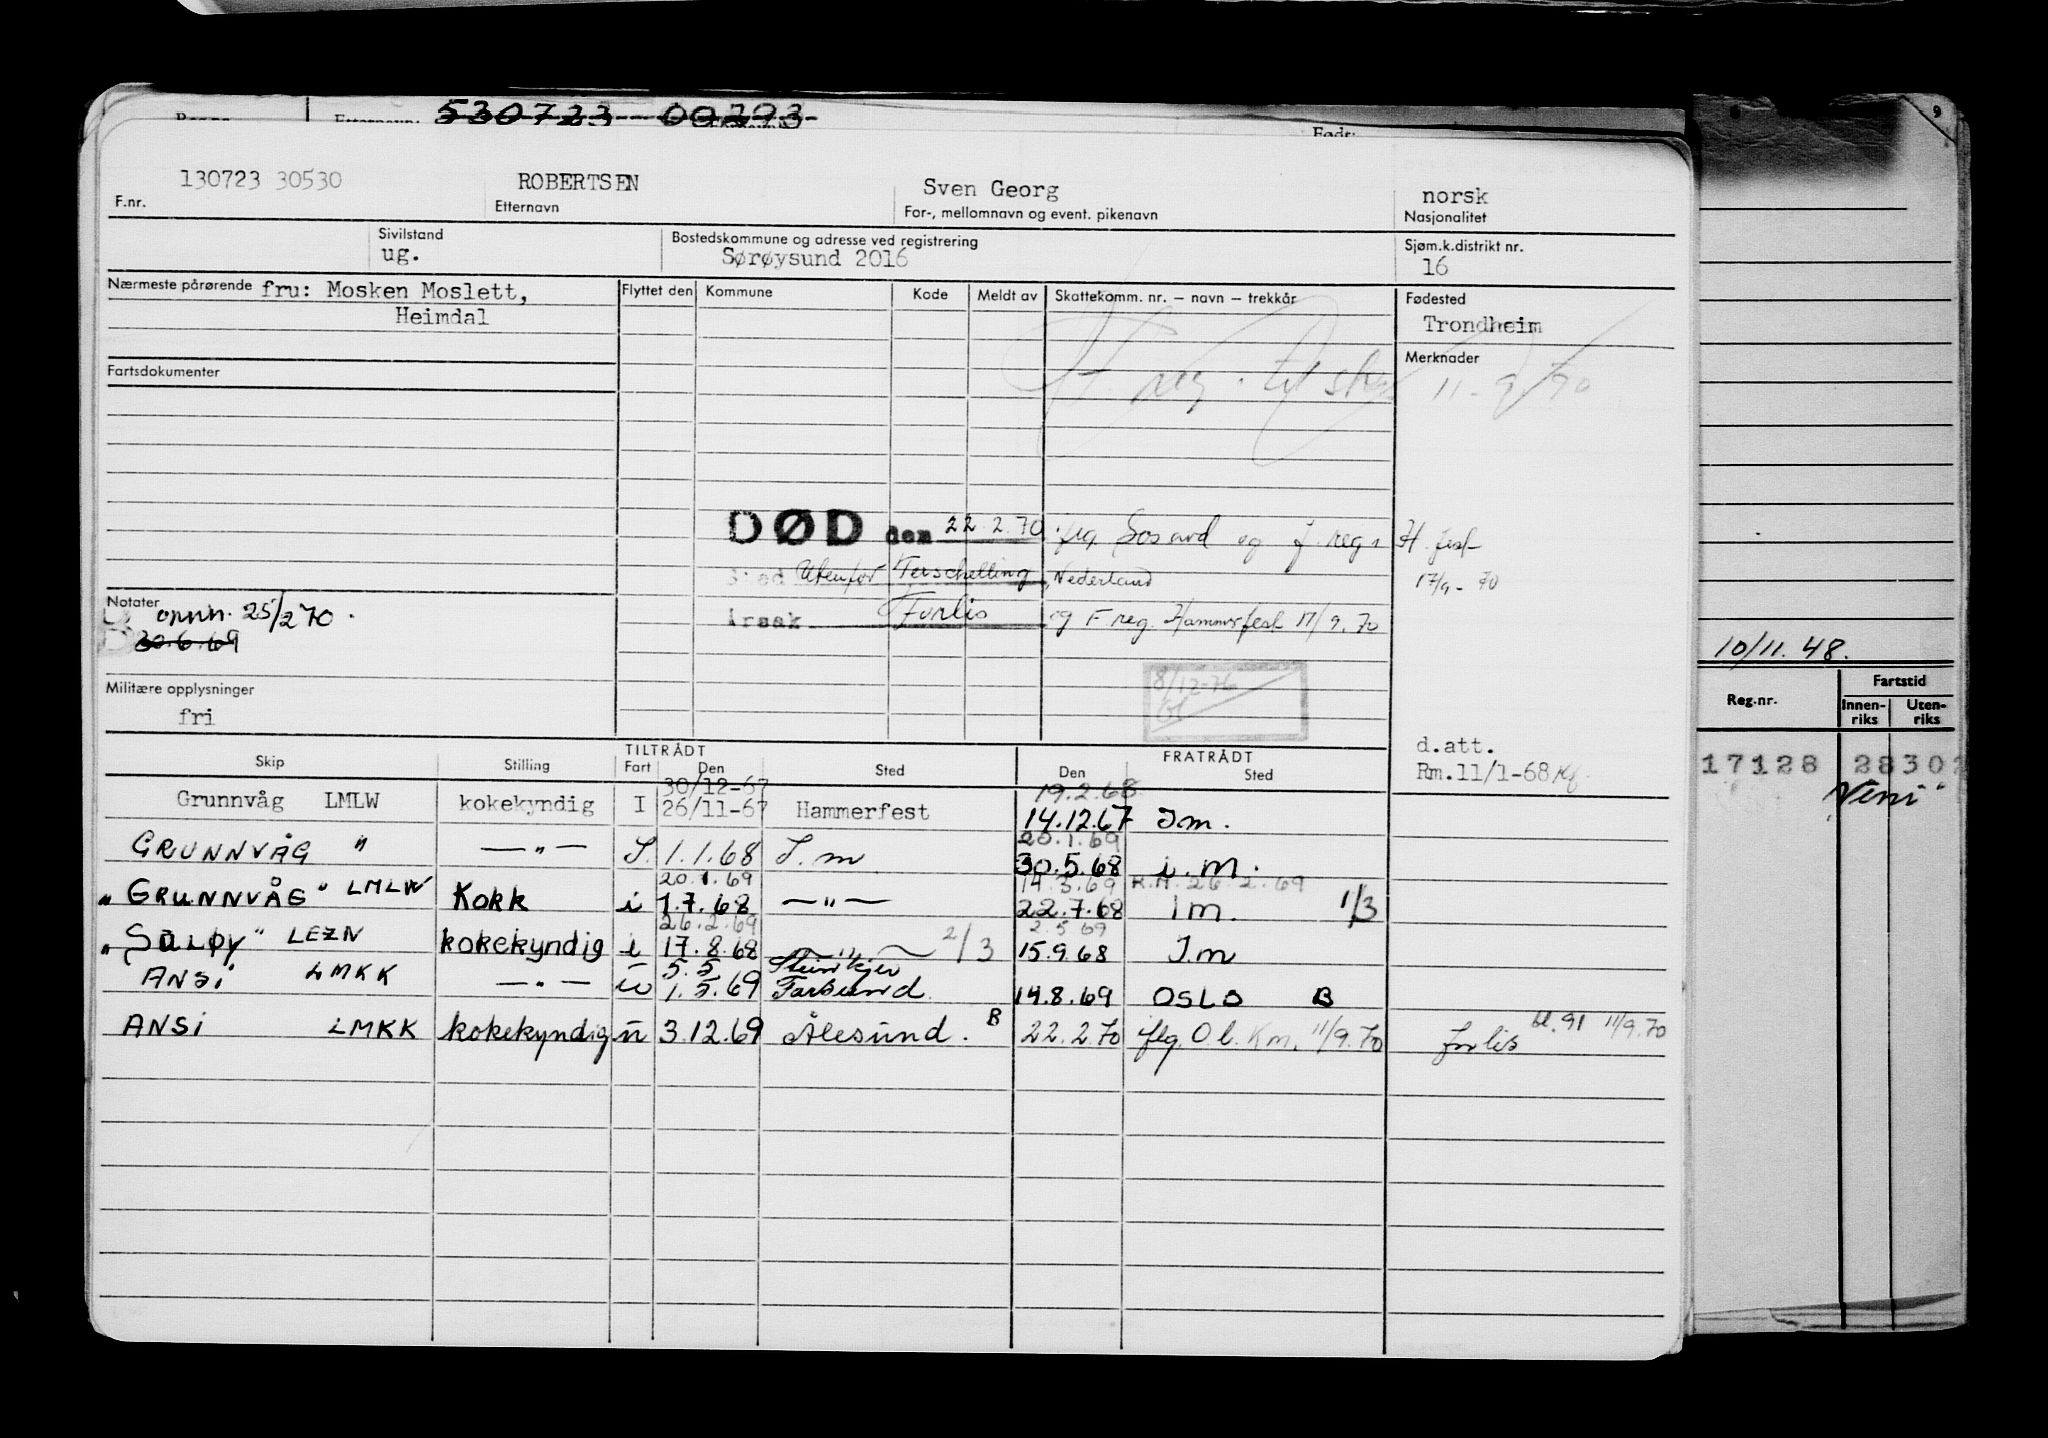 530723 00293
Etternavn:
Født:
9
130723 30530 ROBERTSEN Sven Georg norsk
F.nr. Etternavn For-, mellomnavn og event. pikenavn Nasjonalitet
Sivilstand Bostedskommune og adresse ved registrering Sjøm.k.distrikt nr.
ug. Sørøysund 2016 16
Nærmeste pårørende fru: Mosken Moslett, Flyttet den Kommune Kode Meldt av Skattekomm. nr. – navn – trekkår Fødested
Heimdal Trondheim
Merknader
Fartsdokumenter
reg. 11-9/70
DØD den 22.2.70 iflg. og f. reg. H.fest
Sted Utenfor Terschelling, Nederland 17/9-70
Årsak Forlis og F reg. Hammerfest 17/9.70
Notater
onnn. 25/2 70.
30.6.69
10/11.48.
8/12-76
Militære opplysninger
fri
Reg.nr. Fartstid
Innen-riks Uten-riks
17128 2830
d.att.
Rm.11/1-68
TILTRÅDT FRATRÅDT
Skip Stilling Fart Den Sted Den Sted
30/12-67 19.2.68
Grunnvåg LMLW kokekyndig I 26/11-67 Hammerfest 14.12.67 Im.
20.1.69
GRUNNVÅG " —"— I. 1.1.68 I.m 30.5.68 i.m.
20.1.69 14.3.69 R.M. 26.2.69
"GRUNNVÅG" LMLW Kokk i 1.7.68 —"— 22.7.68 Im. 1/3
26.2.69 2.5.69
"SULØY" LEZN kokekyndig i 17.8.68 —"— 2/3 15.9.68 I.m
5.5 Steinkjer
ANSI LMKK —"— u 1.5.69 Farsund 14.8.69 OSLO B
ANSI LMKK kokekyndig u 3.12.69 Ålesund. B 22.2.70 iflg. O.b. Km. 11/9.70 forlis bl.91 11/9.70